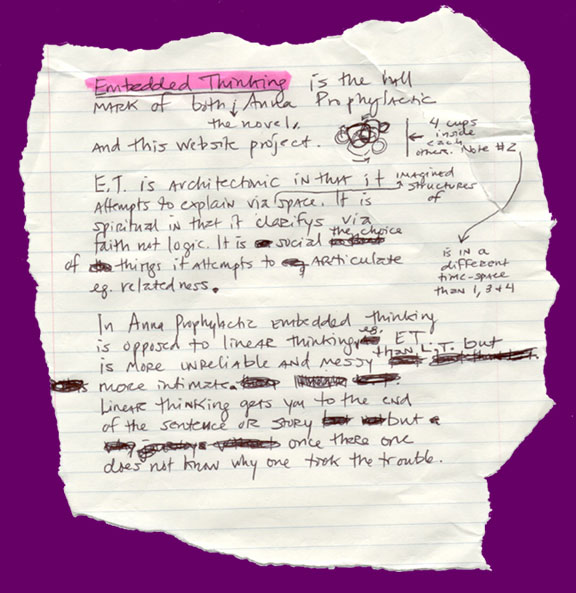 Embedded Thinking is the hall
MARK of both Anna Prophylactic
the novel.
And this website project.
4 cups
inside
each
other. Note #2
is IN a
different
time-space
than 1, 3+4
E.T. is Architectonic in that it
IMAGINED
structures
of
Attempts to explain via space. It is
spiritual in that it clarifys via
faith not logic. It is social the choice
of things it Attempts to ARticulate
eg. relatedness.
In Anna Prophylactic embedded thinking
is opposed to linear thinking eg. E.T.
is more unreliable and messy than L.T. but
more intimate.
Linear thinking gets you to the end
of the sentence or story but
once there one
does not know why one took the trouble.